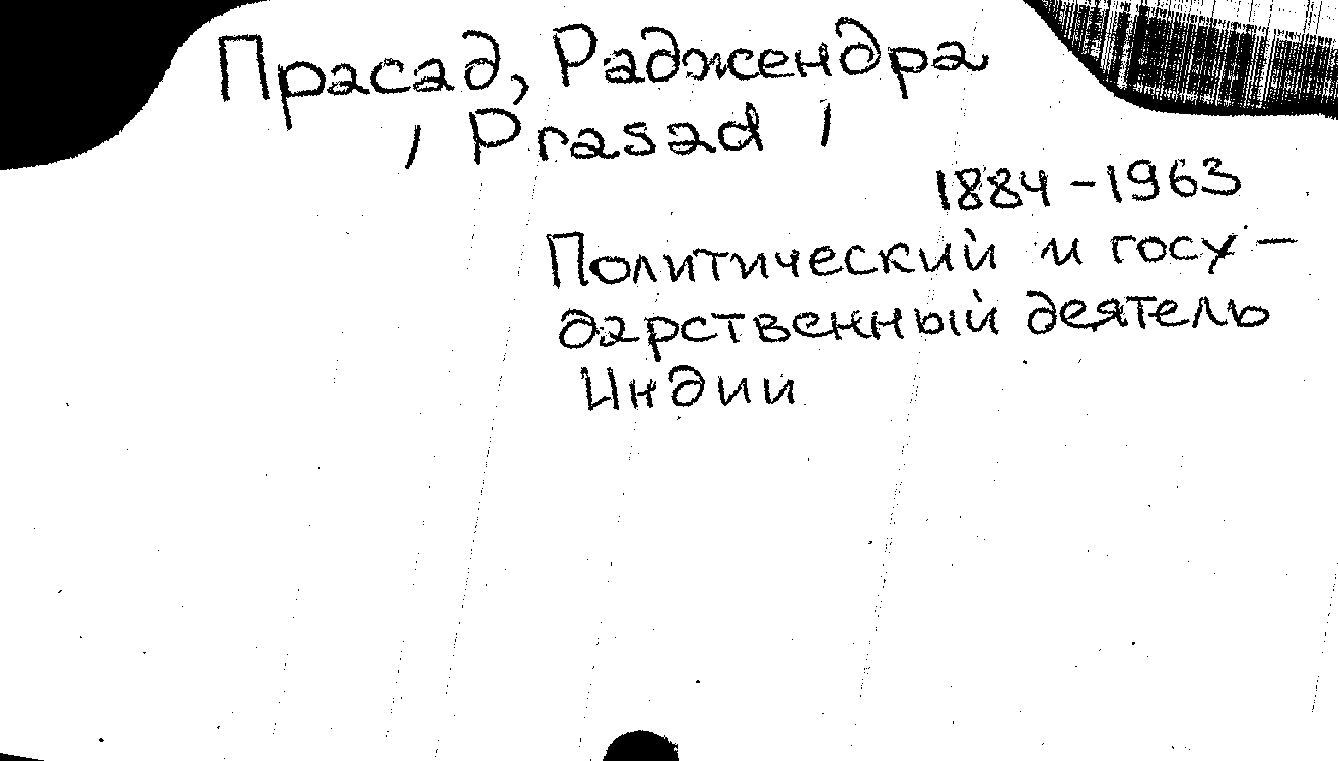 Прасад, Раджендра
/ Prasad /
1884-1963
Политический и госу-
дарственный деятель
Индии